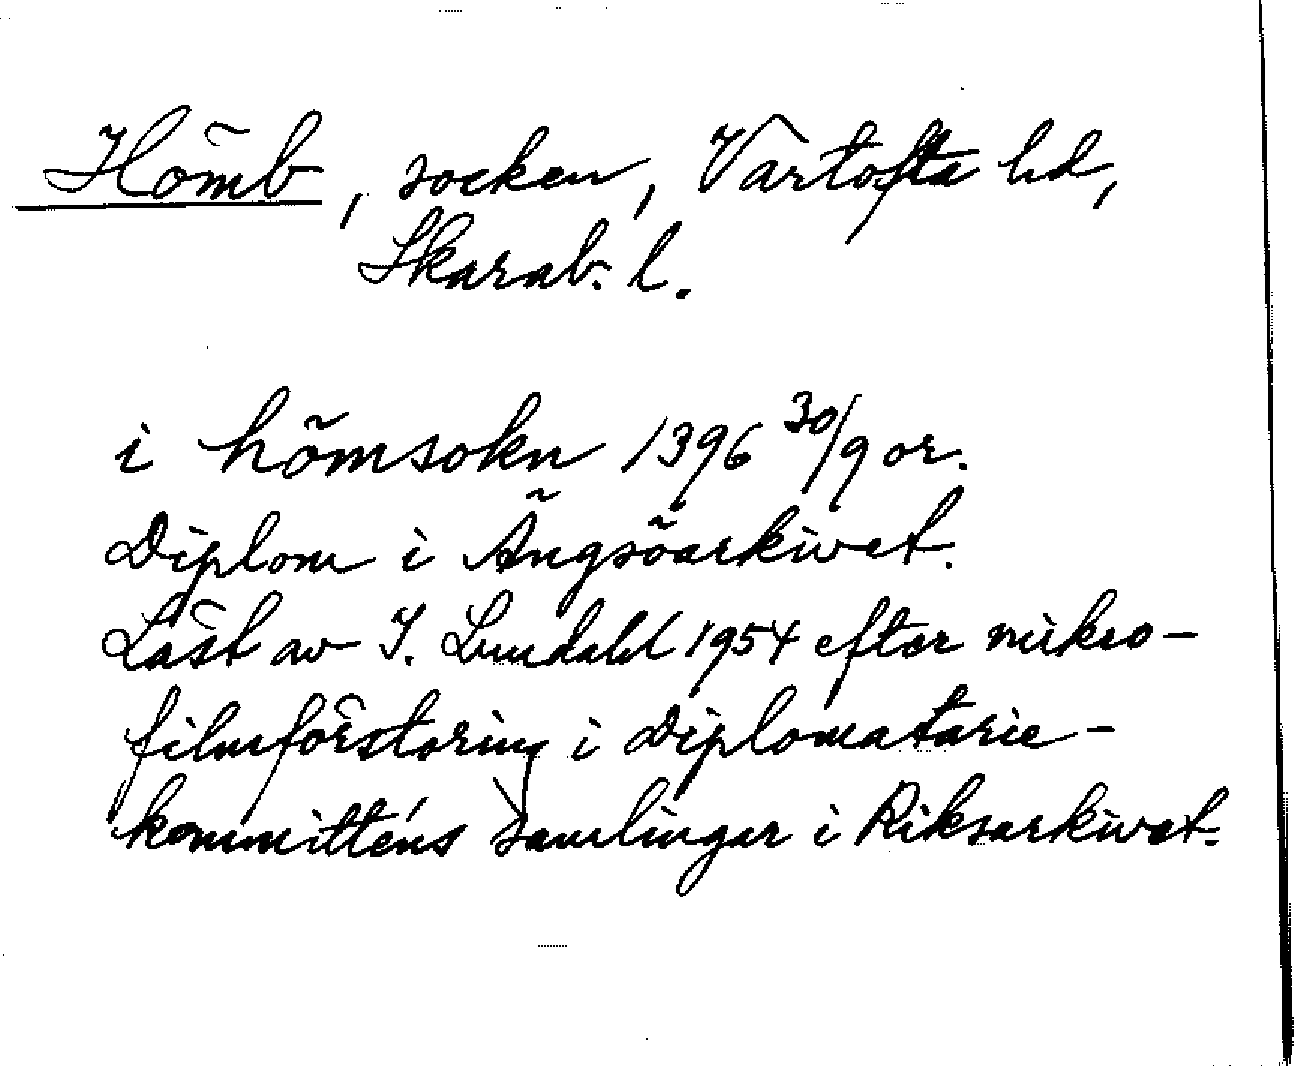 Hömb, socken, Vartofta hd,
Skarab. l.
i hömsokn 1396 30/9 or.
Diplom i Ängsöarkivet.
Läst av I. Lundahl 1954 efter mikro-
filmförstoring i Diplomatarie-
kommitténs samlingar i Riksarkivet.